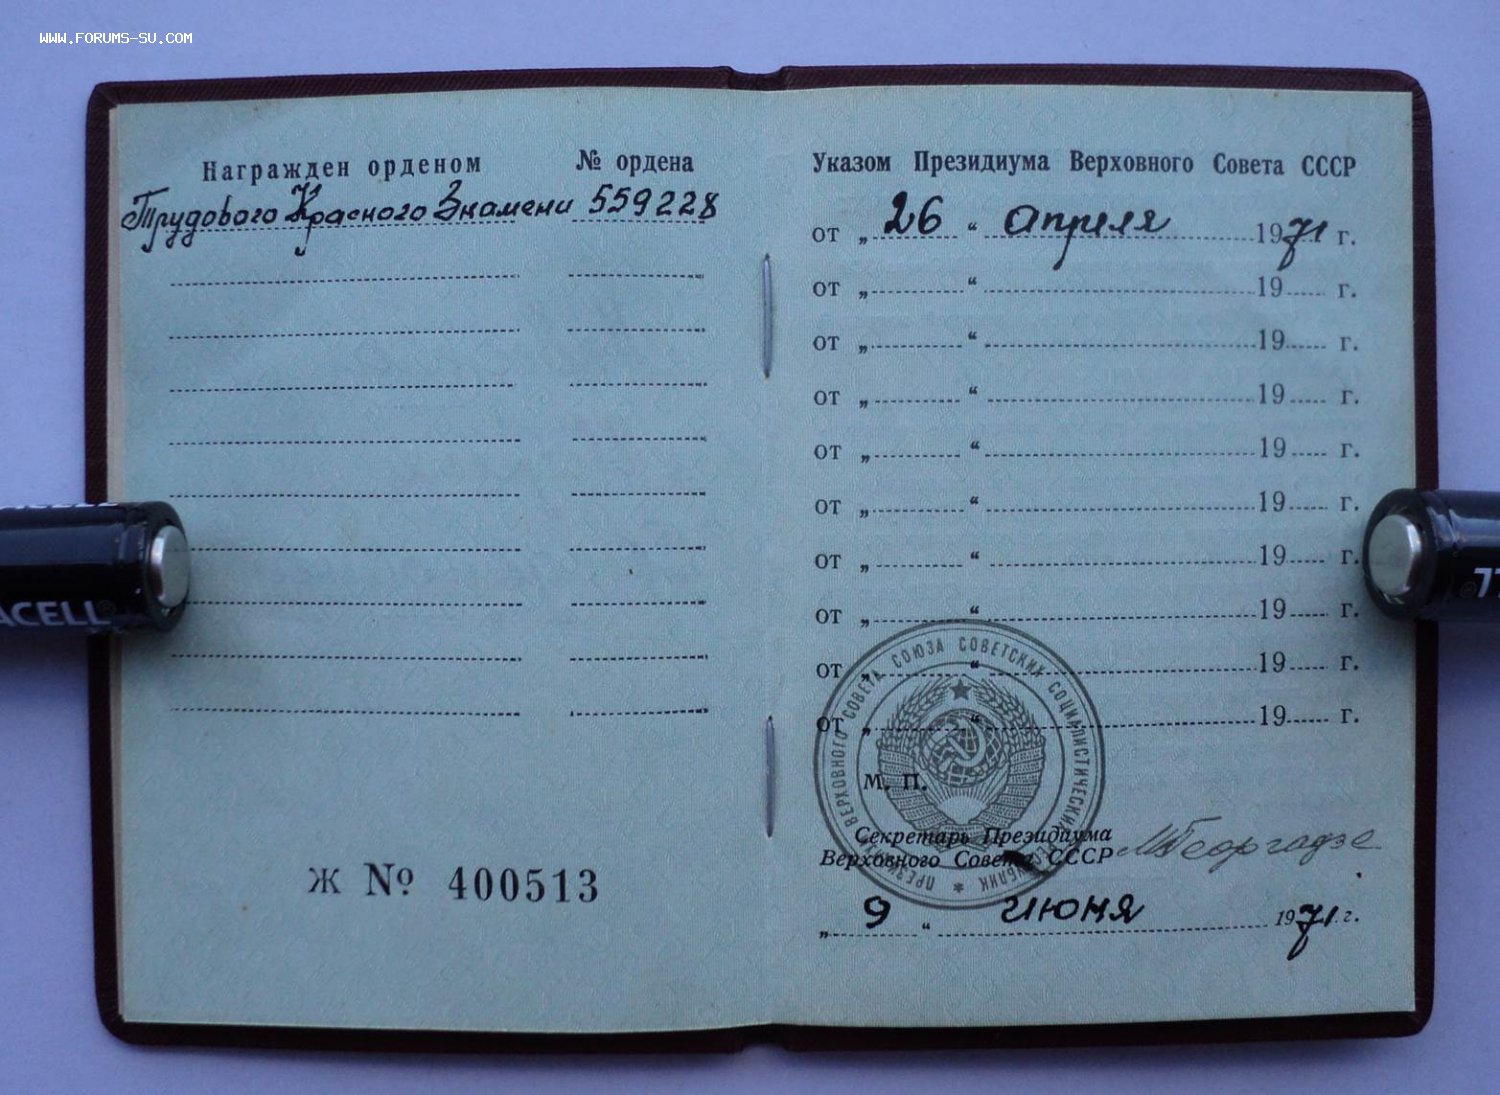 WWW.FORUMS-SU.COM
Награжден орденом № ордена
Трудового Красного Знамени 559228
Ж № 400513
Указом Президиума Верховного Совета СССР
от „ 26 “ апреля 1971 г.
от „ “ 19 г.
от „ “ 19 г.
от „ “ 19 г.
от „ “ 19 г.
от „ “ 19 г.
от „ “ 19 г.
от „ “ 19 г.
от „ “ 19 г.
от „ “ 19 г.
ПРЕЗИДИУМ ВЕРХОВНОГО СОВЕТА СОЮЗА СОВЕТСКИХ СОЦИАЛИСТИЧЕСКИХ РЕСПУБЛИК
М. П.
Секретарь Президиума
Верховного Совета СССР М Георгадзе
„ 9 “ июня 1971 г.
ACELL®